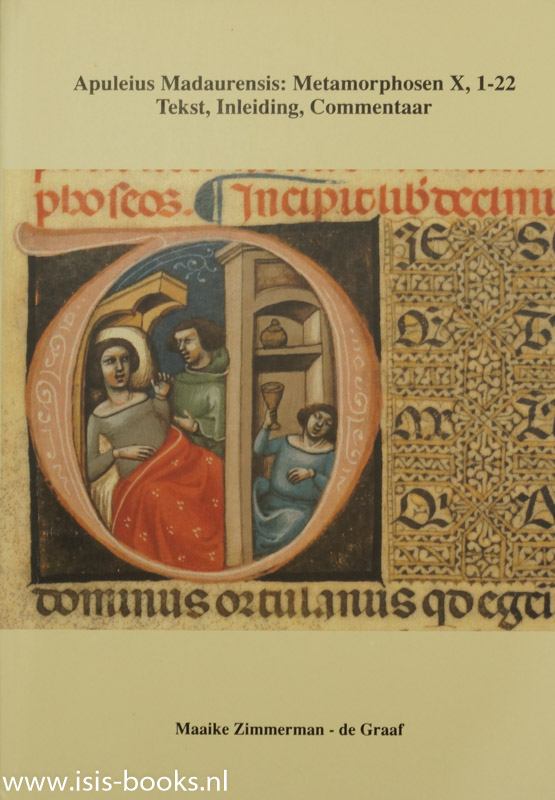 Apuleius Madaurensis: Metamorphosen X, 1-22
Tekst, Inleiding, Commentaar
phoseos. Incipit lib' decim
dominus ortulanus qd egei
Maaike Zimmerman - de Graaf
www.isis-books.nl